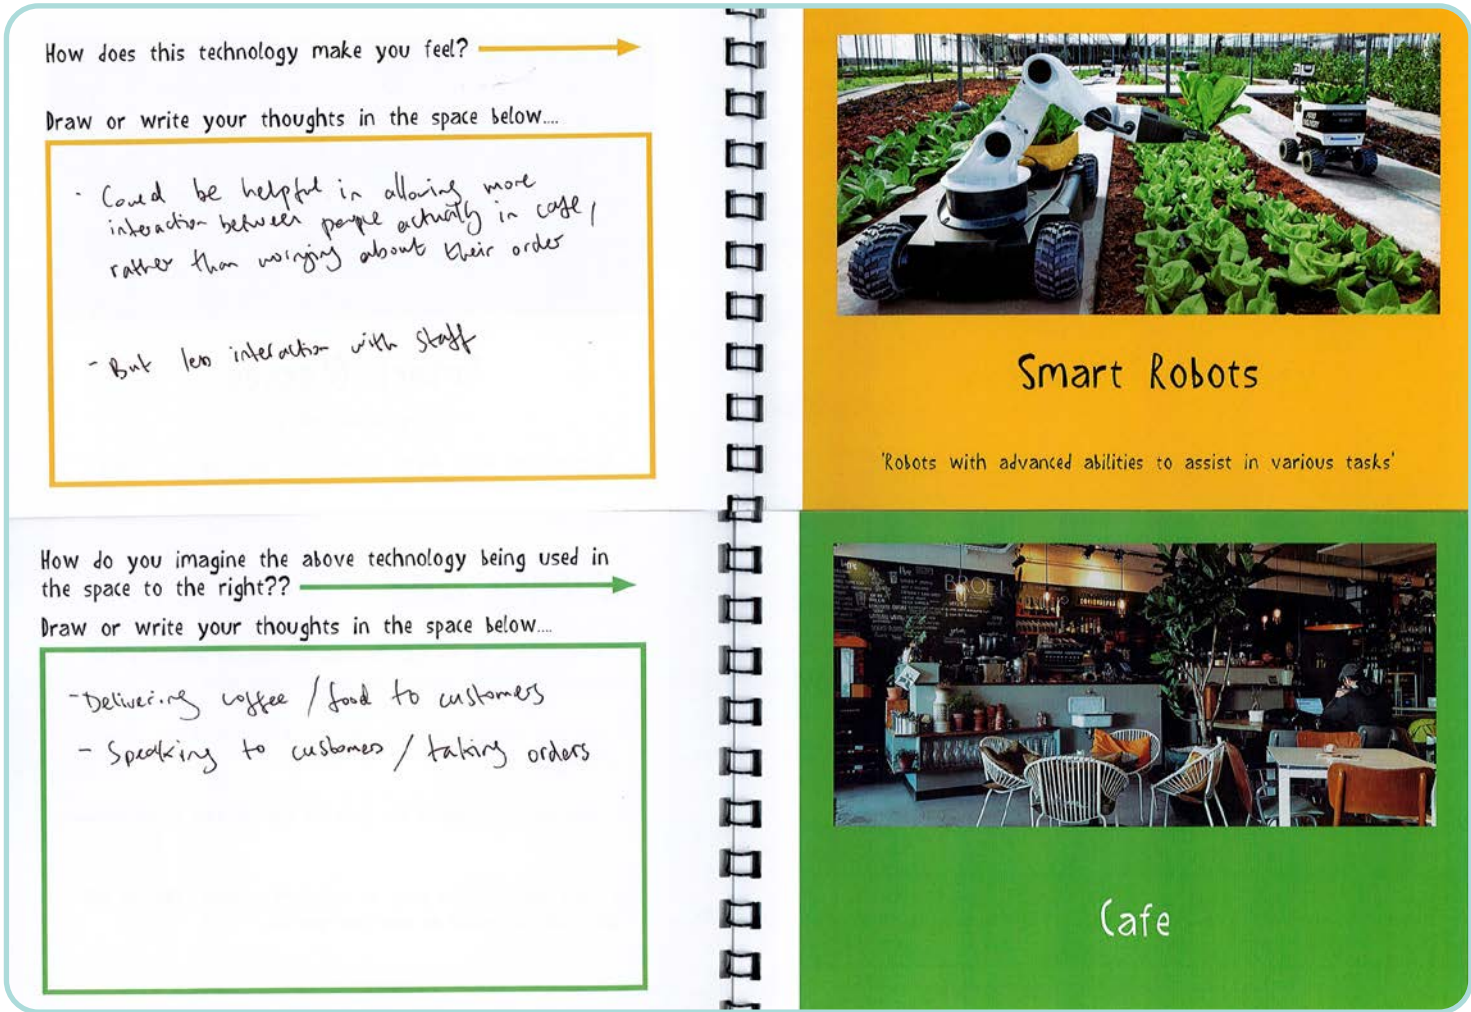 How does this technology make you feel?
Draw or write your thoughts in the space below....
- Could be helpful in allowing more
interaction between people actually in cafe,
rather than worrying about their order
- But less interaction with staff
Smart Robots
'Robots with advanced abilities to assist in various tasks'
How do you imagine the above technology being used in
the space to the right??
Draw or write your thoughts in the space below....
- Delivering coffee / food to customers
- Speaking to customers / taking orders
BROEI
Cafe